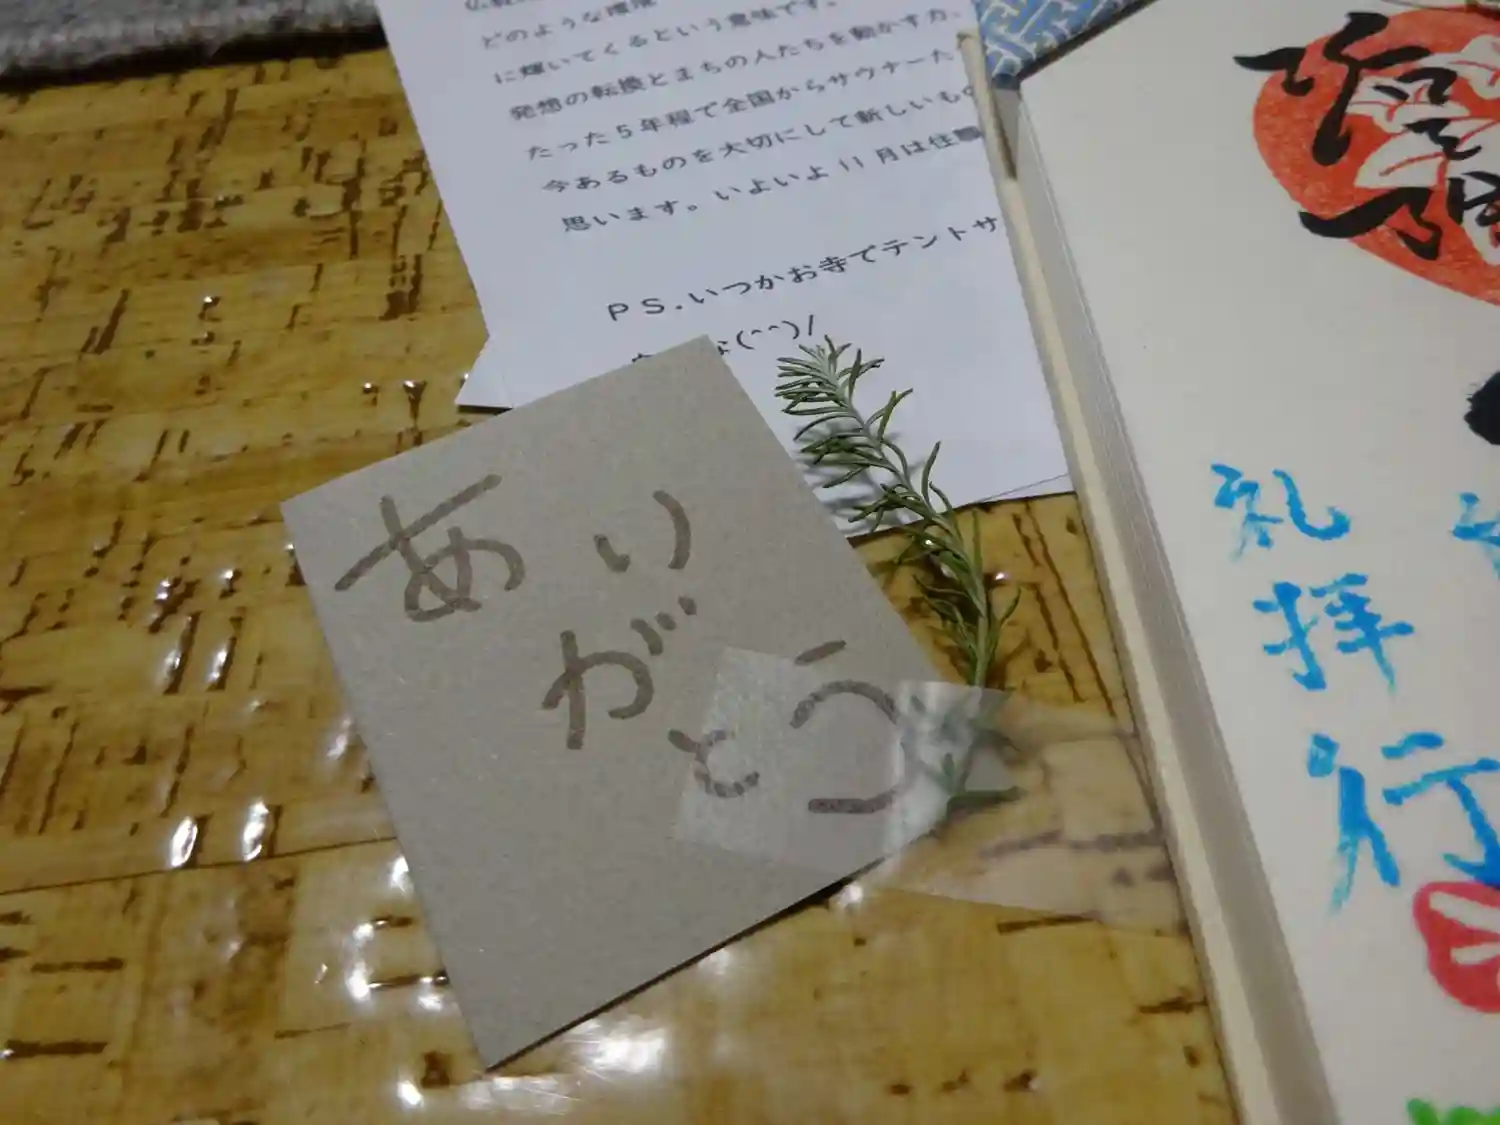 どのような環境
に輝いてくるという意味です。
発想の転換とまちの人たちを動かす力、
たった5年程で全国からサウナーた
今あるものを大切にして新しいもの
思います。いよいよ11月は住職
PS.いつかお寺でテントサ
な(^^)/
あり
が
とう
礼
拝
行